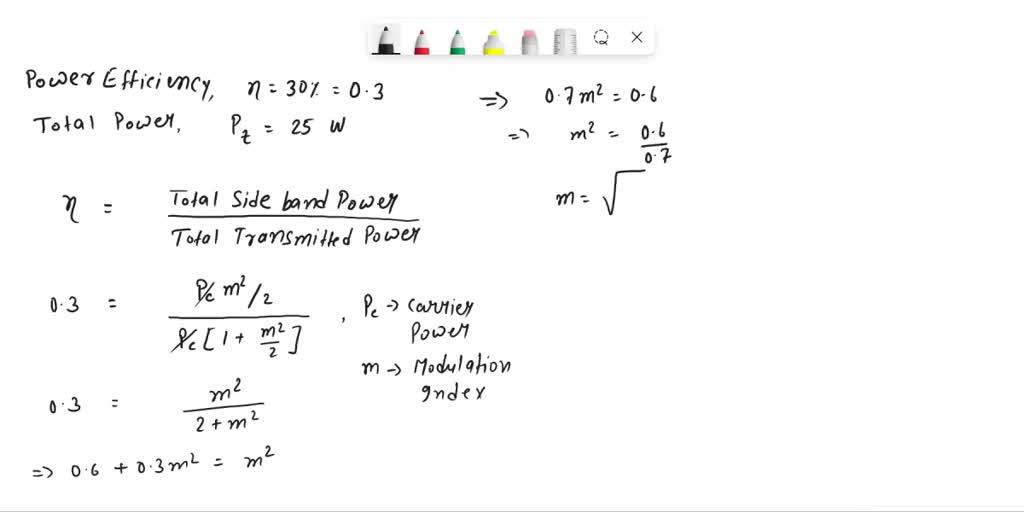 Power Efficiency, η = 30% = 0.3
Total Power, Pt = 25 W
η = Total Side band Power / Total Transmitted Power
0.3 = Pc m²/2 / Pc [1 + m²/2] , Pc → Carrier Power
m → Modulation Index
0.3 = m² / 2 + m²
⇒ 0.6 + 0.3m² = m²
⇒ 0.7m² = 0.6
⇒ m² = 0.6 / 0.7
m = √